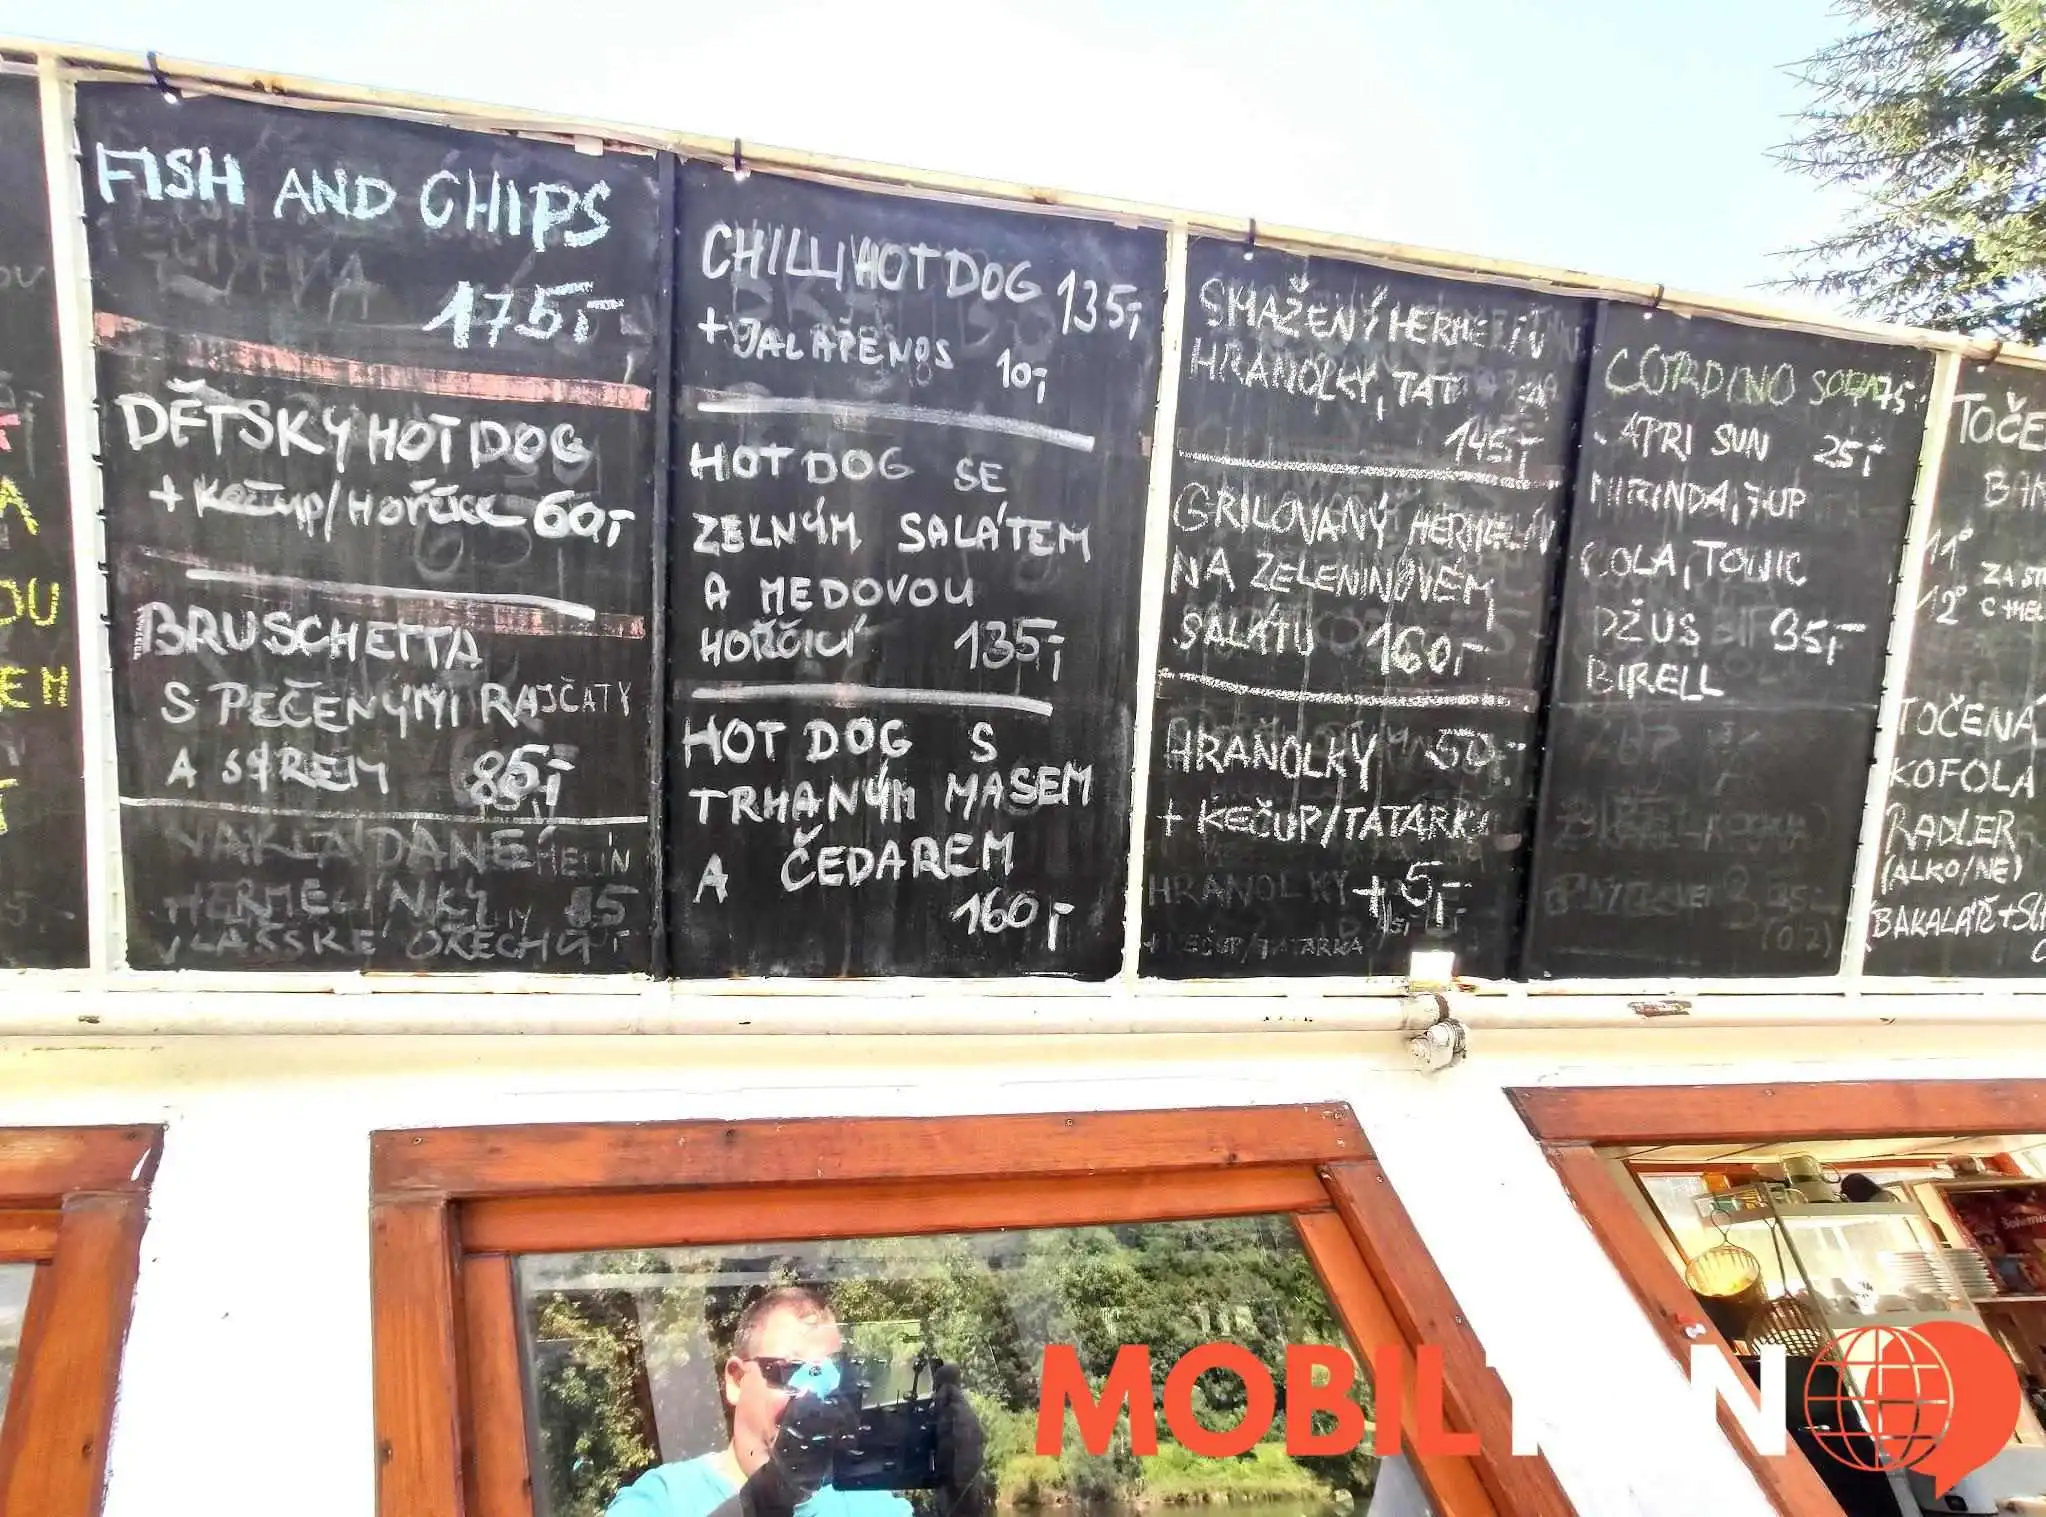 FISH AND CHIPS
175,-
DĚTSKÝ HOT DOG
+ KEČUP/HOŘČICE 60,-
BRUSCHETTA
S PEČENÝMI RAJČATY
A SÝREM 85,-
NAKLÁDANÉ
HERMELÍNKY 85
VLAŠSKÉ OŘECHY
CHILLI HOT DOG 135,-
+ JALAPEŇOS 10,-
HOT DOG SE
ZELNÝM SALÁTEM
A MEDOVOU
HOŘČICÍ 135,-
HOT DOG S
TRHANÝM MASEM
A ČEDAREM
160,-
SMAŽENÝ HERMELÍN
HRANOLKY, TAT
145,-
GRILOVANÝ HERMELÍN
NA ZELENINOVÉM
SALÁTU 160,-
HRANOLKY 50,-
+ KEČUP/TATARKA
+5,-
HRANOLKY
+ KEČUP/TATARKA
SODA 75,-
SUN 25,-
MIRINDA, 7UP
COLA, TONIC
DŽUS 35,-
BIRELL
(0,2)
TOČE
BAK
11°
12°
TOČENÁ
KOFOLA
RADLER
(ALKO/NE)
BAKALÁŘ +
OU
EM
MOBIL N